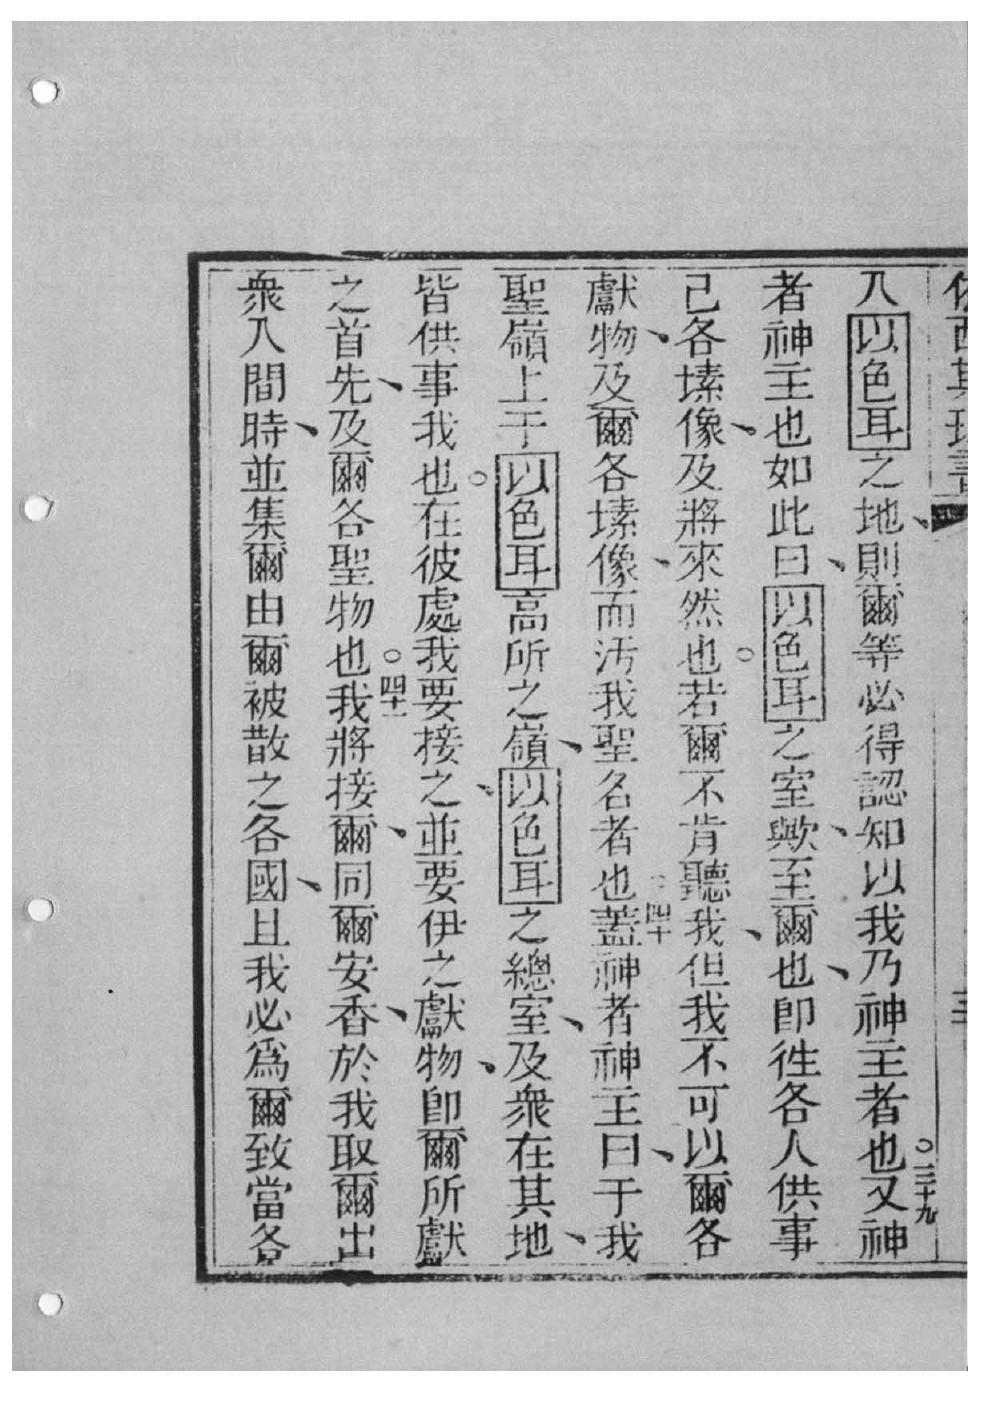 入以色耳之地、則爾等必得認知以我乃神主者也○三十九又神
者神主也如此曰、以色耳之室歟、至爾也、卽徃各人供事
己各塐像、及將來然也○若爾不肯聽我、但我不可以爾各
獻物、及爾各塐像、而汚我聖名者也○四十蓋神者神主曰、于我
聖嶺上于以色耳高所之嶺、以色耳之總室、及衆在其地、
皆供事我也○在彼處我要接之、並要伊之獻物、卽爾所獻
之首先、及爾各聖物也○四十一我將接爾、同爾安香、於我取爾出
衆人間時、並集爾由爾被散之各國、且我必爲爾致當各